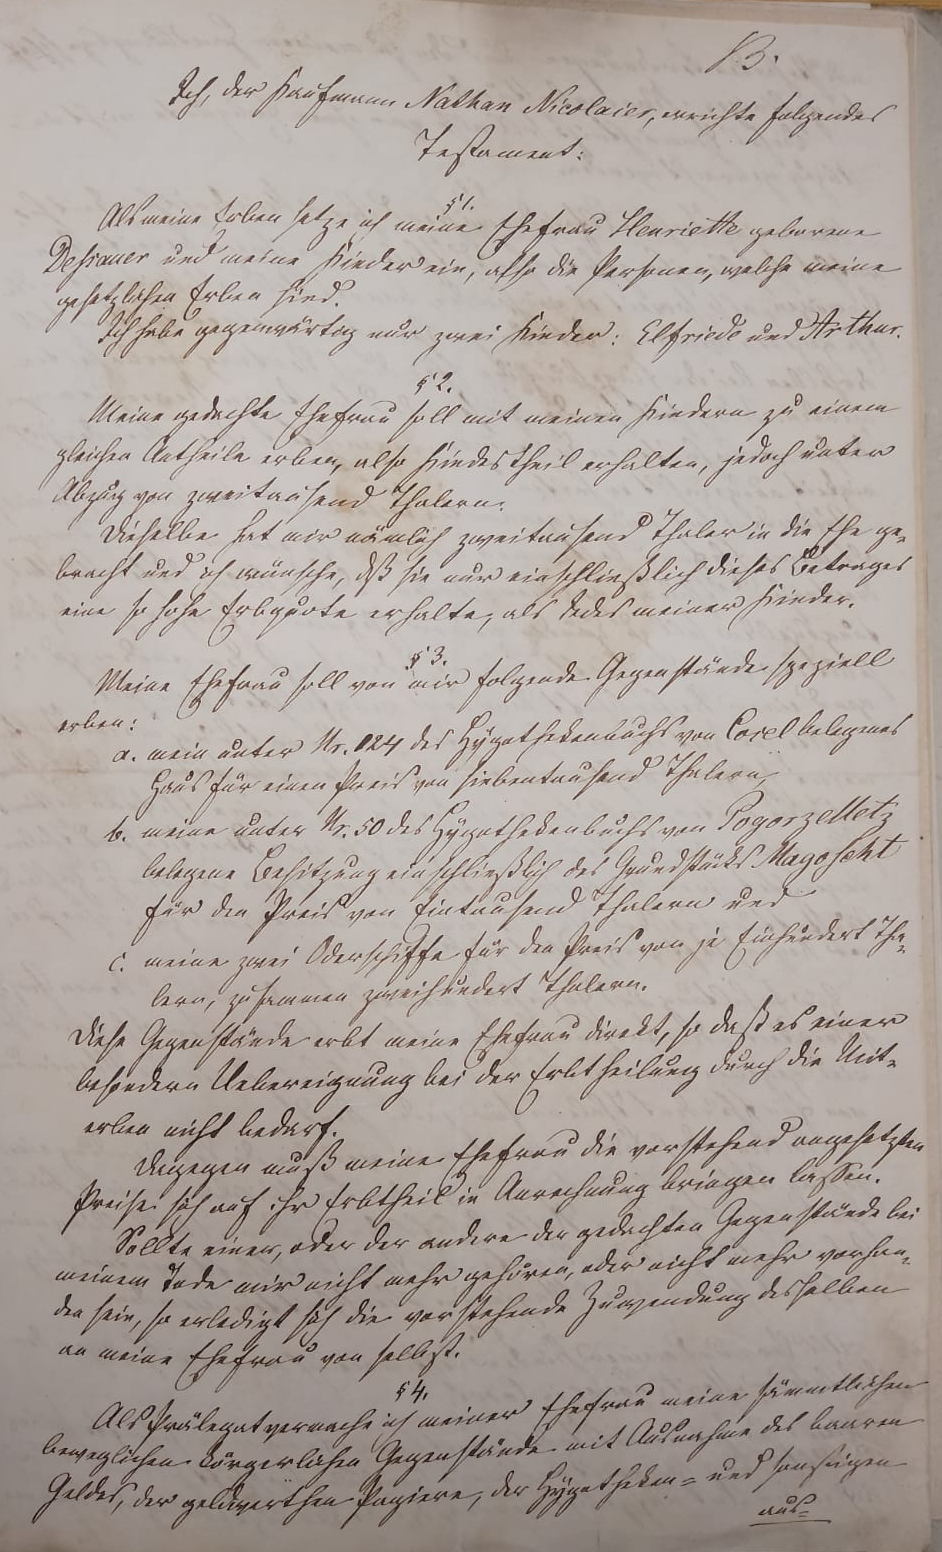 B.
Ich, der Kaufmann Nathan Nicolaier, errichte folgendes
Testament:
§ 1.
Als meine Erben setze ich meine Ehefrau Henriette geborene
Dessauer und meine Kinder ein, also die Personen, welche meine
gesetzlichen Erben sind.
Ich habe gegenwärtig nur zwei Kinder: Elfriede und Arthur.
§ 2.
Meine gedachte Ehefrau soll mit meinen Kindern zu einem
gleichen Antheile erben, also Kindestheil erhalten, jedoch unter
Abzug von zweitausend Thalern.
Dieselbe hat mir nämlich zweitausend Thaler in die Ehe ge-
bracht und ich wünsche, daß sie nur einschließlich dieses Betrages
eine so hohe Erbquote erhalte, als jedes meiner Kinder.
§ 3.
Meine Ehefrau soll von mir folgende Gegenstände speziell
erben:
a. mein unter Nr. 124 des Hypothekenbuchs von Cosel belegenes
Haus für einen Preis von siebentausend Thalern,
b. meine unter Nr. 50 des Hypothekenbuchs von Pogorzelletz
belegene Besitzung einschließlich des Grundstücks Magoscht
für den Preis von Eintausend Thalern und
c. meine zwei Oderschiffe für den Preis von je Einhundert Tha-
lern, zusammen zweihundert Thalern.
Diese Gegenstände erbt meine Ehefrau direkt, so daß es einer
besondern Uebereignung bei der Erbtheilung durch die Mit-
erben nicht bedarf.
Dagegen muß meine Ehefrau die vorstehend angesetzten
Preise sich auf ihr Erbtheil in Anrechnung bringen lassen.
Sollte einer, oder der andere der gedachten Gegenstände bei
meinem Tode mir nicht mehr gehören, oder nicht mehr vorhan-
den sein, so erledigt sich die vorstehende Zuwendung desselben
an meine Ehefrau von selbst.
§ 4.
Als Prälegat vermache ich meiner Ehefrau meine sämmtlichen
beweglichen körperlichen Gegenstände mit Ausnahme des baaren
Geldes, der geldwerthen Papiere, der Hypotheken- und sonstigen
aus-